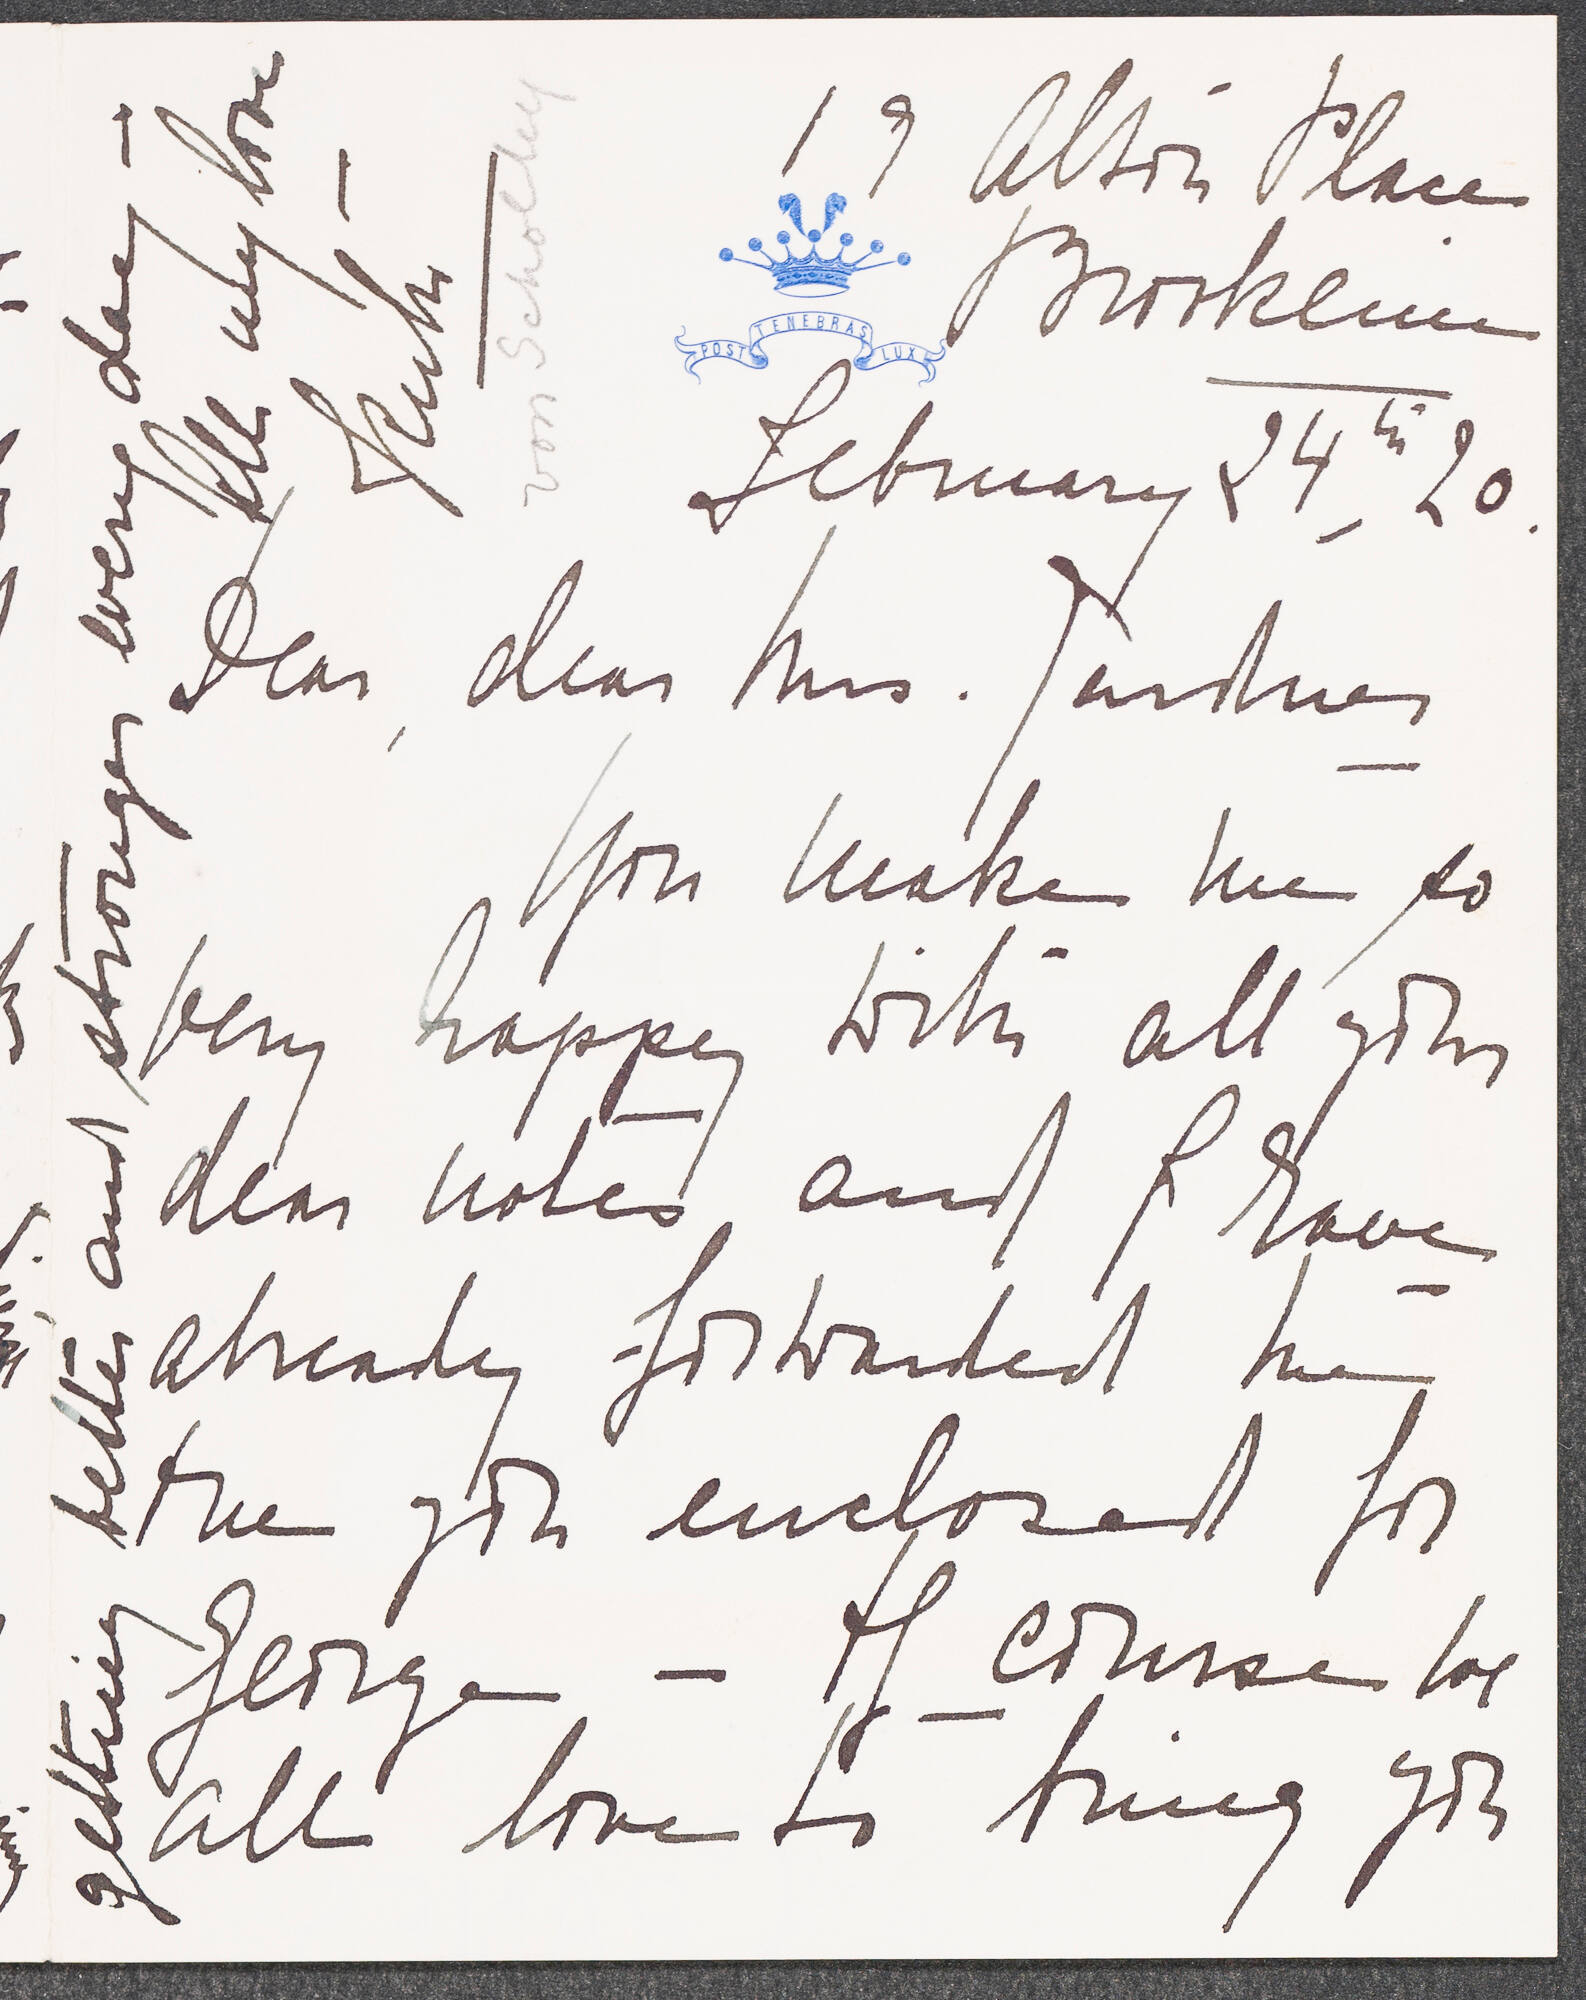 19 Alton Place
Brookline
POST TENEBRAS LUX
February 24th, 20.
Dear, dear Mrs. Gardner
You make me so
very happy with all your
dear notes and I have
already forwarded the
one you enclosed for
George – Of course we
all love to bring you
getting better and stronger every day –
All my love
von Scholley